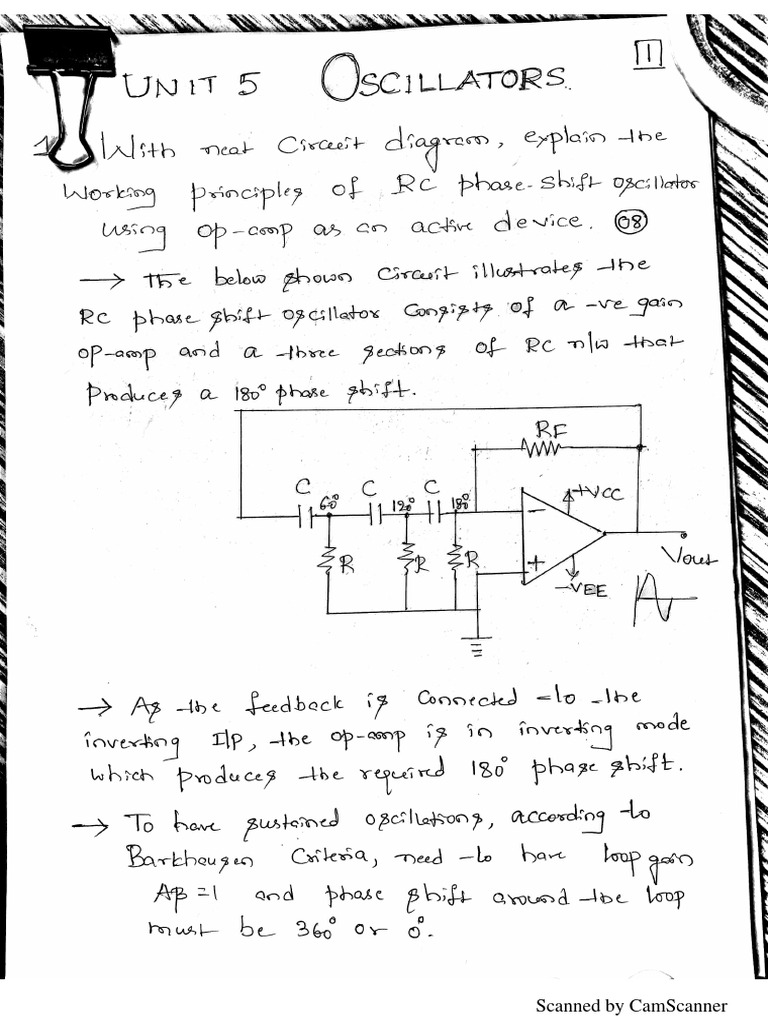 1
UNIT 5 OSCILLATORS.
1. With neat Circuit diagram, explain the
Working principles of RC phase-shift oscillator
using op-amp as an active device. 08
→ The below shown Circuit illustrates the
RC phase shift oscillator Consists of a -ve gain
op-amp and a three sections of RC n/w that
Produces a 180° phase shift.
RF
C 60° C 120° C 180° +VCC
−
R R R +
Vout
-VEE
→ As the feedback is Connected to the
inverting I/P, the op-amp is in inverting mode
which produces the required 180° phase shift.
→ To have sustained oscillations, according to
Barkhausen Criteria, need to have loop gain
Aβ=1 and phase shift around the loop
must be 360° or 0°.
Scanned by CamScanner